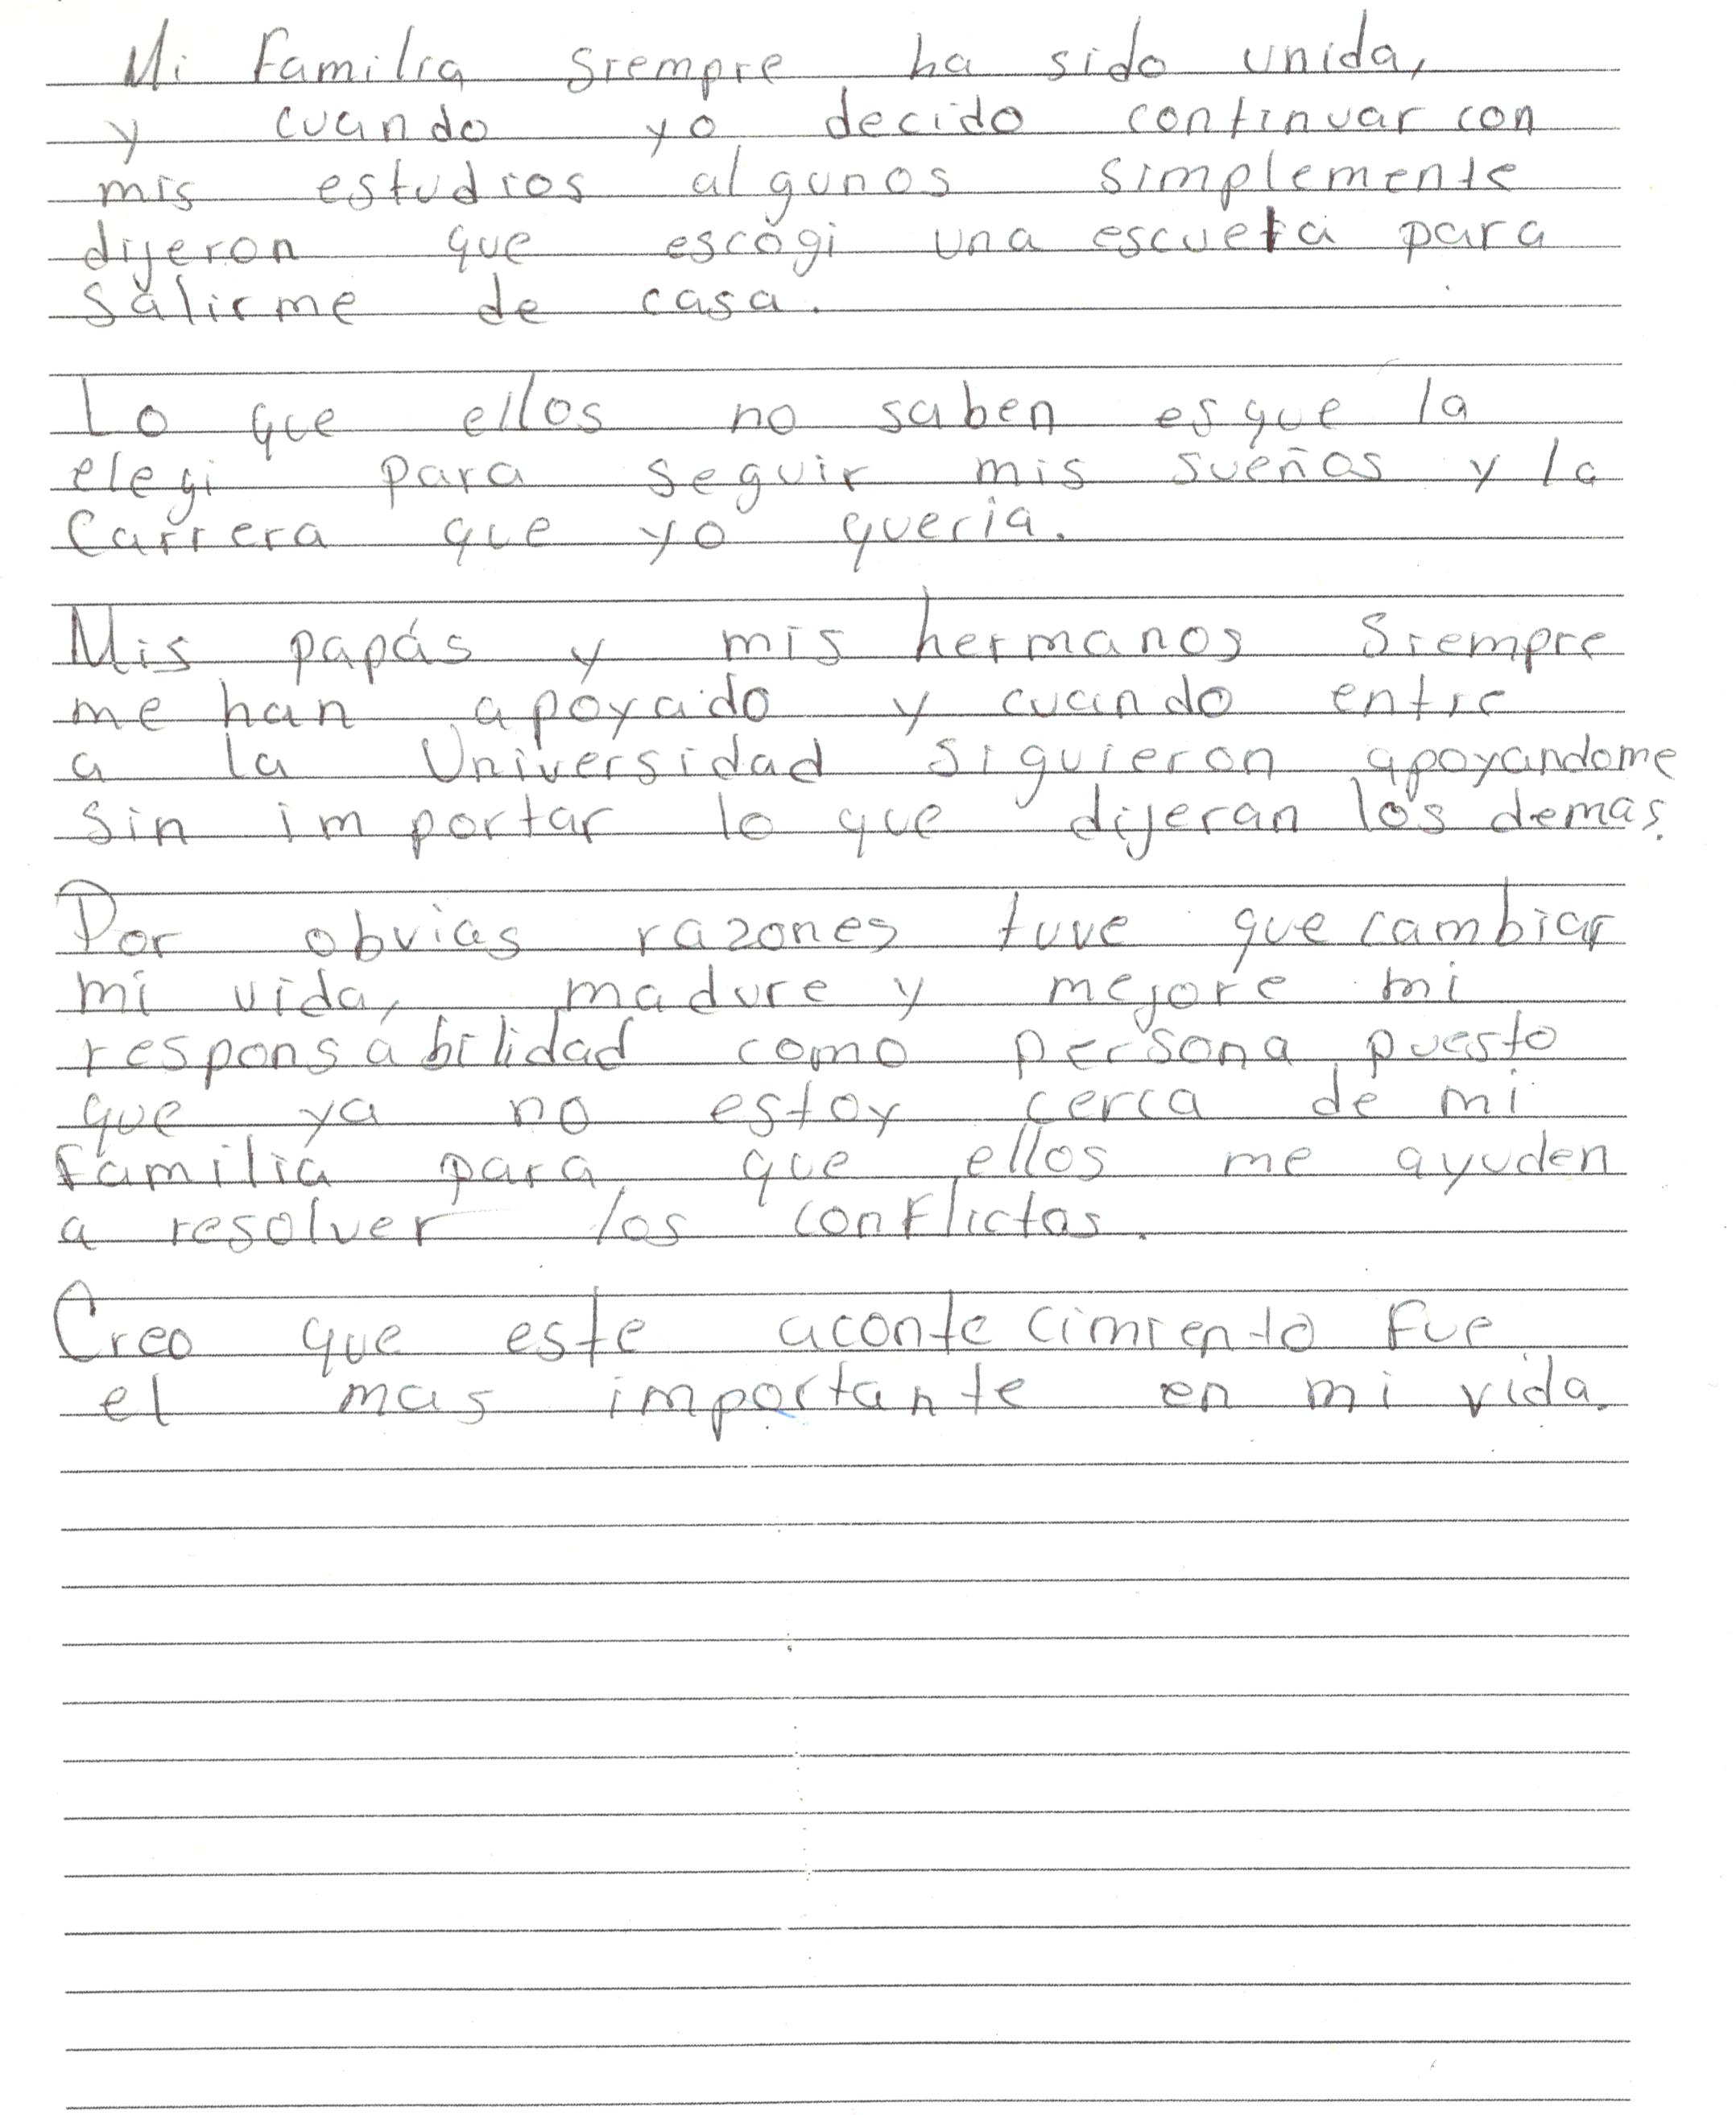 Mi familia siempre ha sido unida,
y cuando yo decido continuar con
mis estudios algunos simplemente
dijeron que escogi una escuela para
salirme de casa.
Lo que ellos no saben es que la
elegi para seguir mis sueños y la
carrera que yo quería.
Mis papás y mis hermanos siempre
me han apoyado y cuando entre
a la Universidad siguieron apoyandome
sin importar lo que dijeran los demas.
Por obvias razones tuve que cambiar
mi vida, madure y mejore mi
responsabilidad como persona puesto
que ya no estoy cerca de mi
familia para que ellos me ayuden
a resolver los conflictos.
Creo que este acontecimiento fue
el mas importante en mi vida.